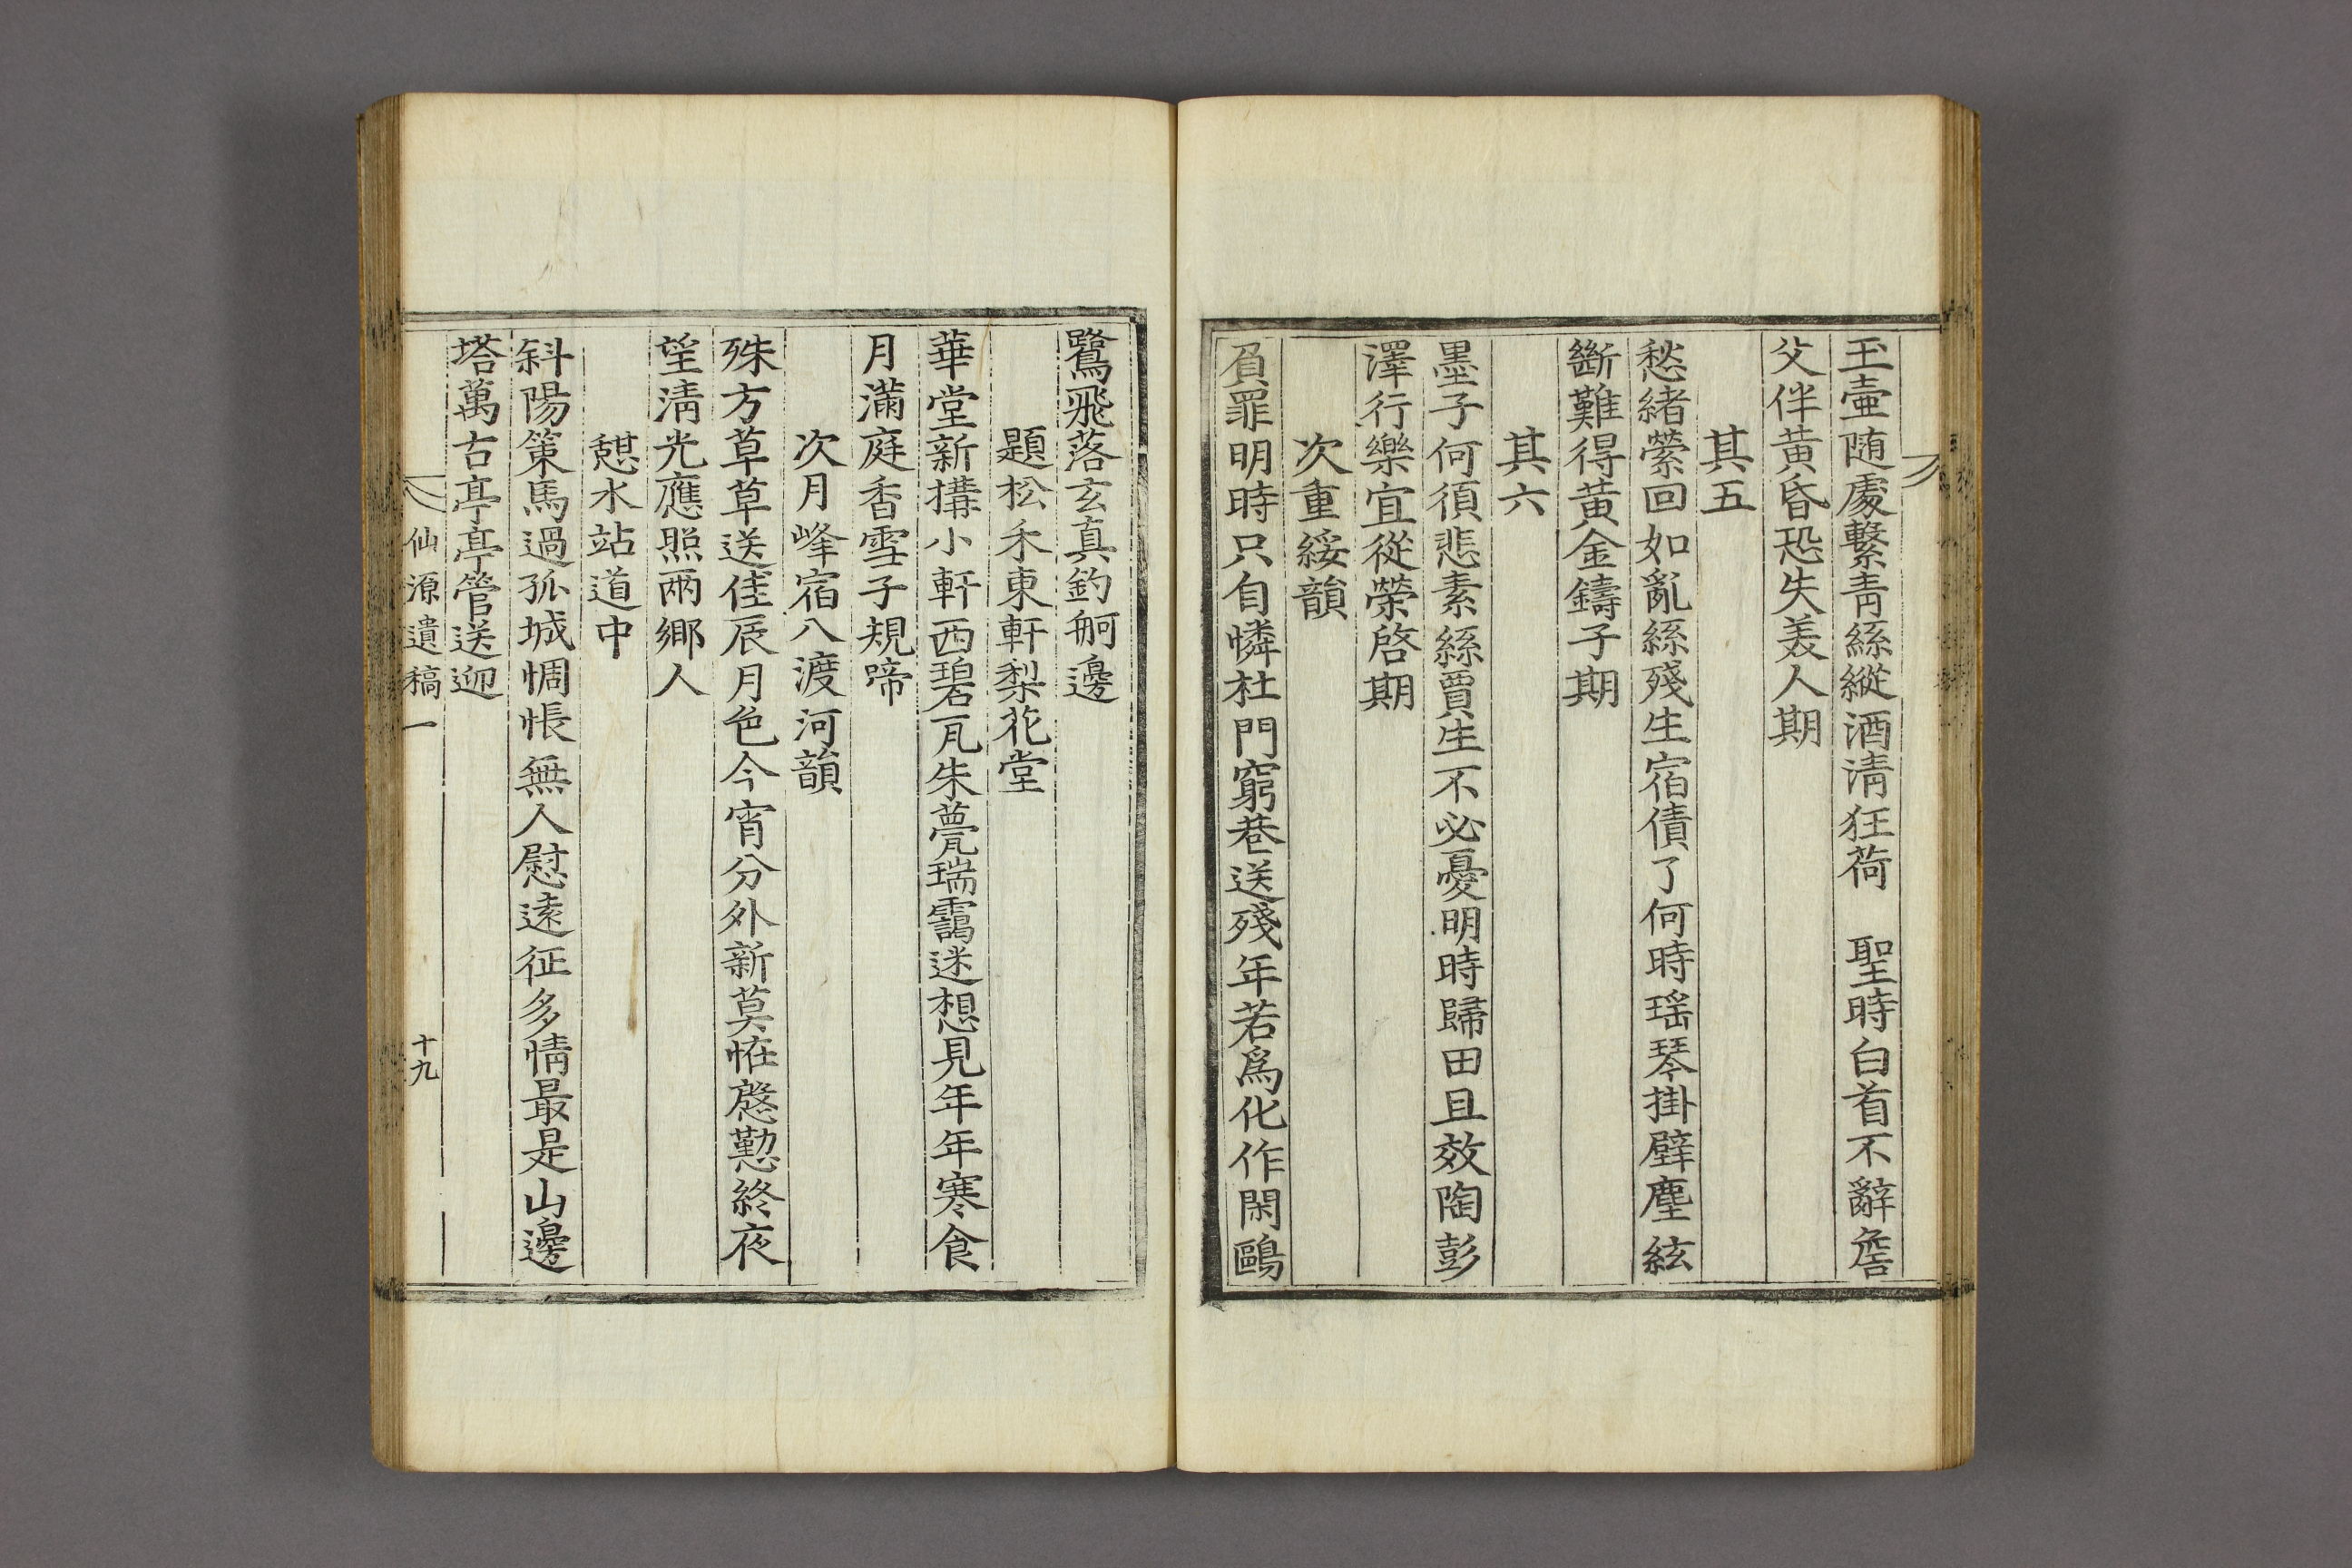 玉壷随處繫靑絲縱酒淸狂荷　聖時白首不辭詹
父伴黃昏恐失美人期
其五
愁緒縈回如亂絲殘生宿債了何時瑶琴掛壁塵絃
斷難得黃金鑄子期
其六
墨子何須悲素絲賈生不必憂明時歸田且效陶彭
澤行樂宜從榮啓期
次重綏韻
負罪明時只自憐杜門窮巷送殘年若爲化作閑鷗
鷺飛落玄真釣舸邊
題松禾東軒梨花堂
華堂新搆小軒西碧瓦朱甍瑞靄迷想見年年寒食
月滿庭香雪子規啼
次月峰宿八渡河韻
殊方草草送佳辰月色今宵分外新莫恠慇懃終夜
望淸光應照兩鄕人
憇水站道中
斜陽策馬過孤城惆悵無人慰遠征多情最是山邊
塔萬古亭亭管送迎
仙源遺稿一
十九